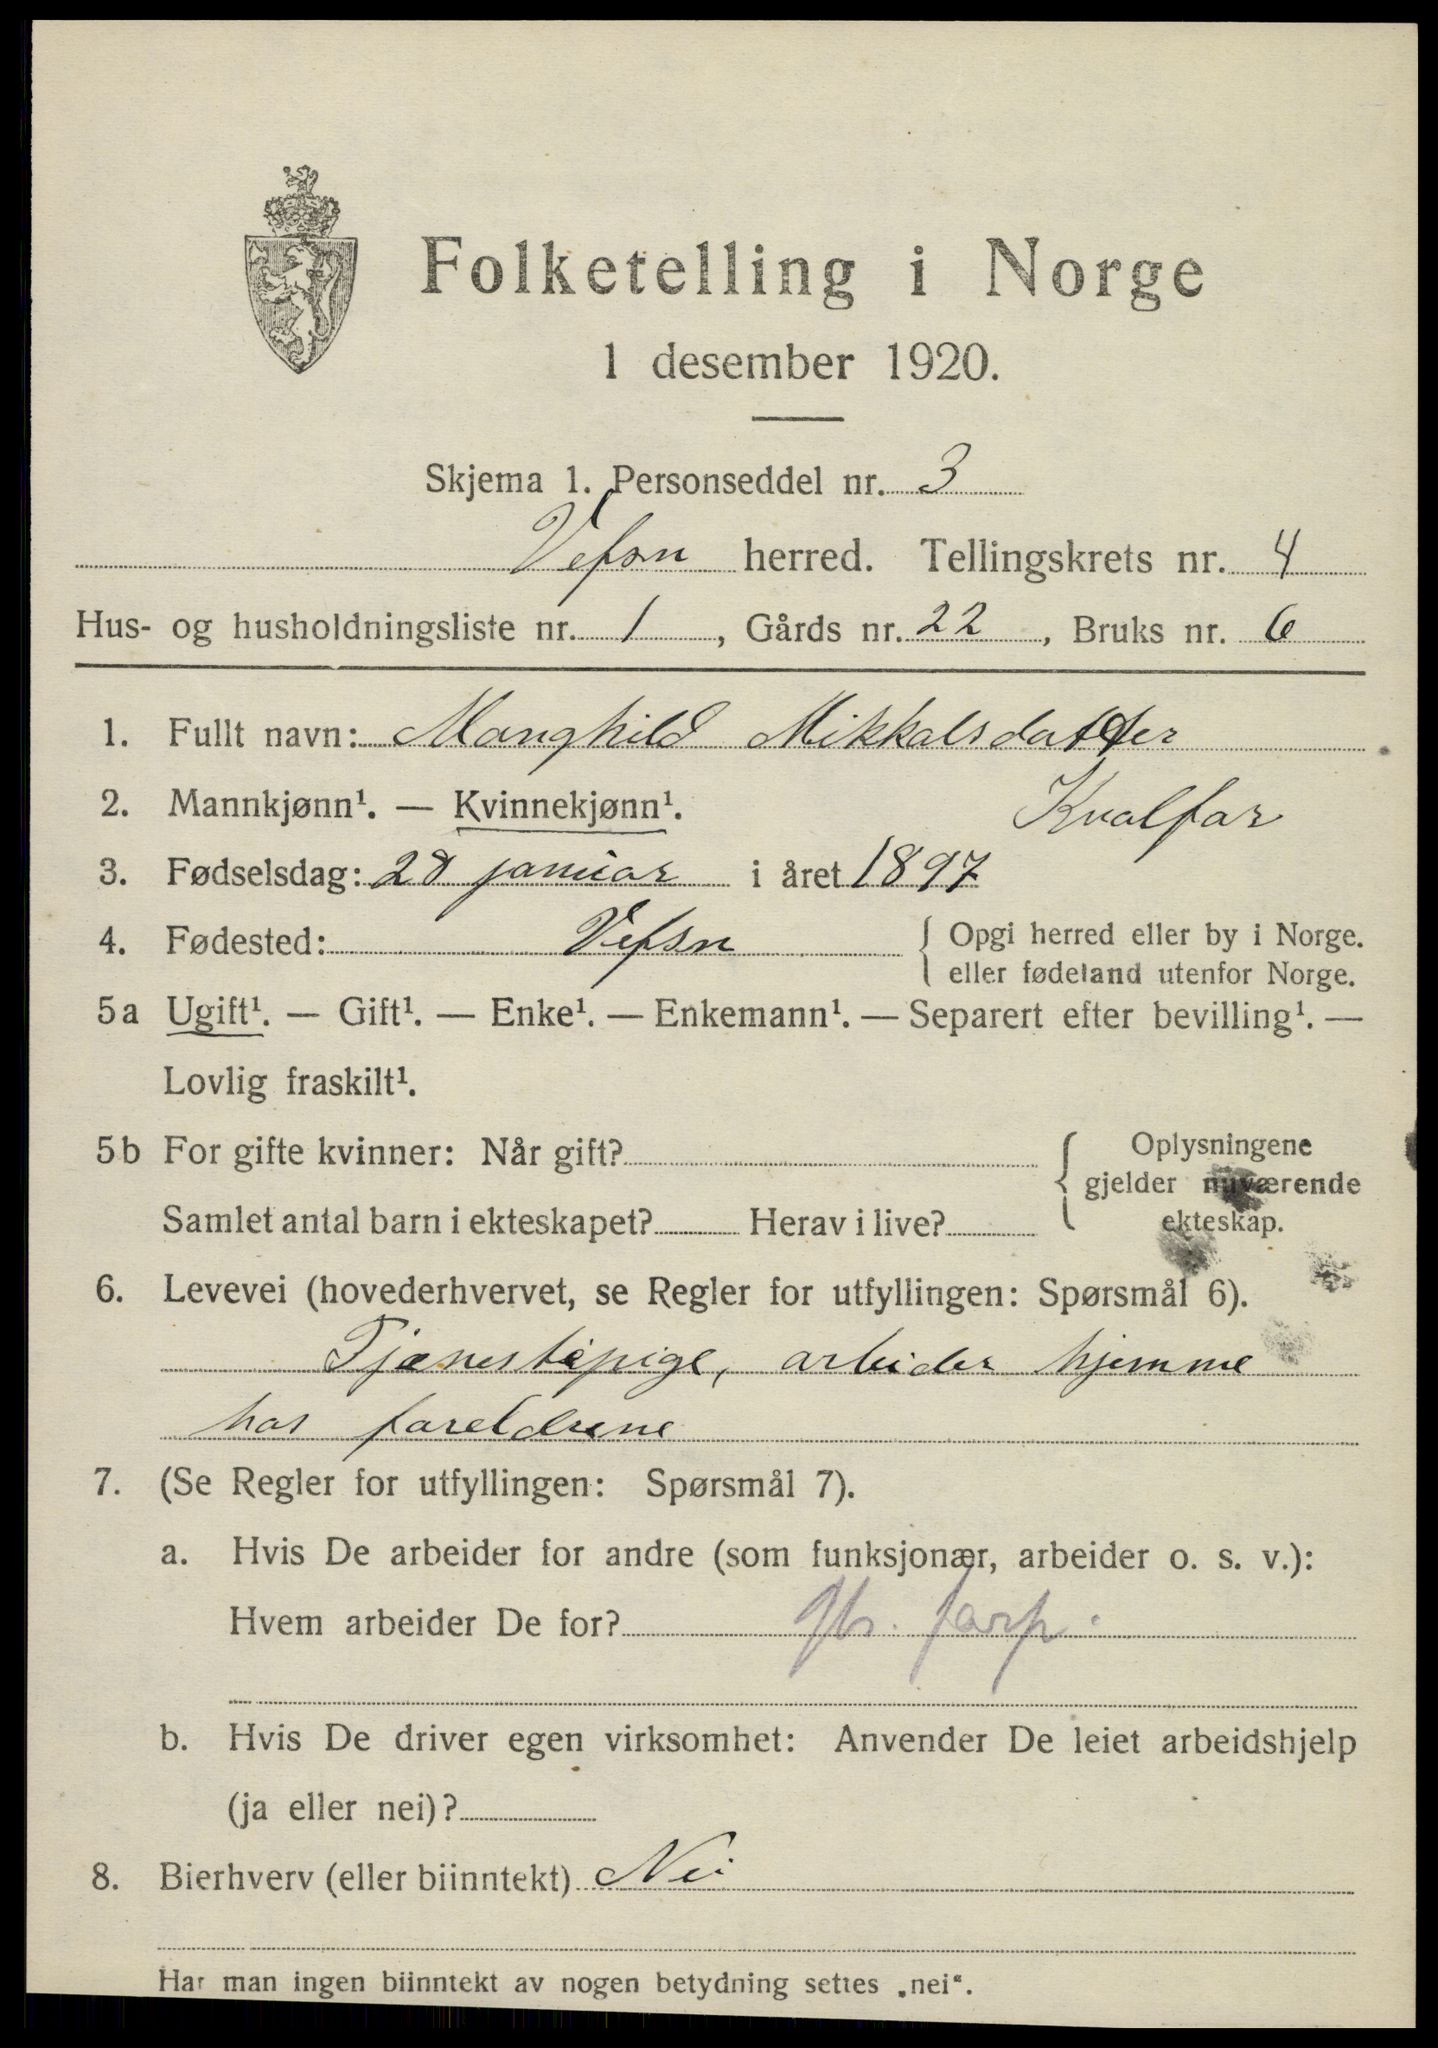 Folketelling i Norge
1 desember 1920.
Skjema 1. Personseddel nr. 3
Vefsn herred. Tellingskrets nr. 4
Hus- og husholdningsliste nr. 1, Gårds nr. 22, Bruks nr. 6
1. Fullt navn: Manghild Mikkalsdatter
2. Mannkjønn¹. — Kvinnekjønn¹. Kvalfar
3. Fødselsdag: 28 januar i året 1897
4. Fødested: Vefsn { Opgi herred eller by i Norge.
eller fødeland utenfor Norge.
5a Ugift¹. — Gift¹. — Enke¹. — Enkemann¹. — Separert efter bevilling¹. —
Lovlig fraskilt¹.
5b For gifte kvinner: Når gift? { Oplysningene
gjelder nuværende
Samlet antal barn i ekteskapet? Herav i live? ekteskap.
6. Levevei (hovederhvervet, se Regler for utfyllingen: Spørsmål 6).
Tjenestepige, arbeider hjemme
hos foreldrene
7. (Se Regler for utfyllingen: Spørsmål 7).
a. Hvis De arbeider for andre (som funksjonær, arbeider o. s. v.):
Hvem arbeider De for?
b. Hvis De driver egen virksomhet: Anvender De leiet arbeidshjelp
(ja eller nei)?
8. Bierhverv (eller biinntekt) Nei
Har man ingen biinntekt av nogen betydning settes „nei“.